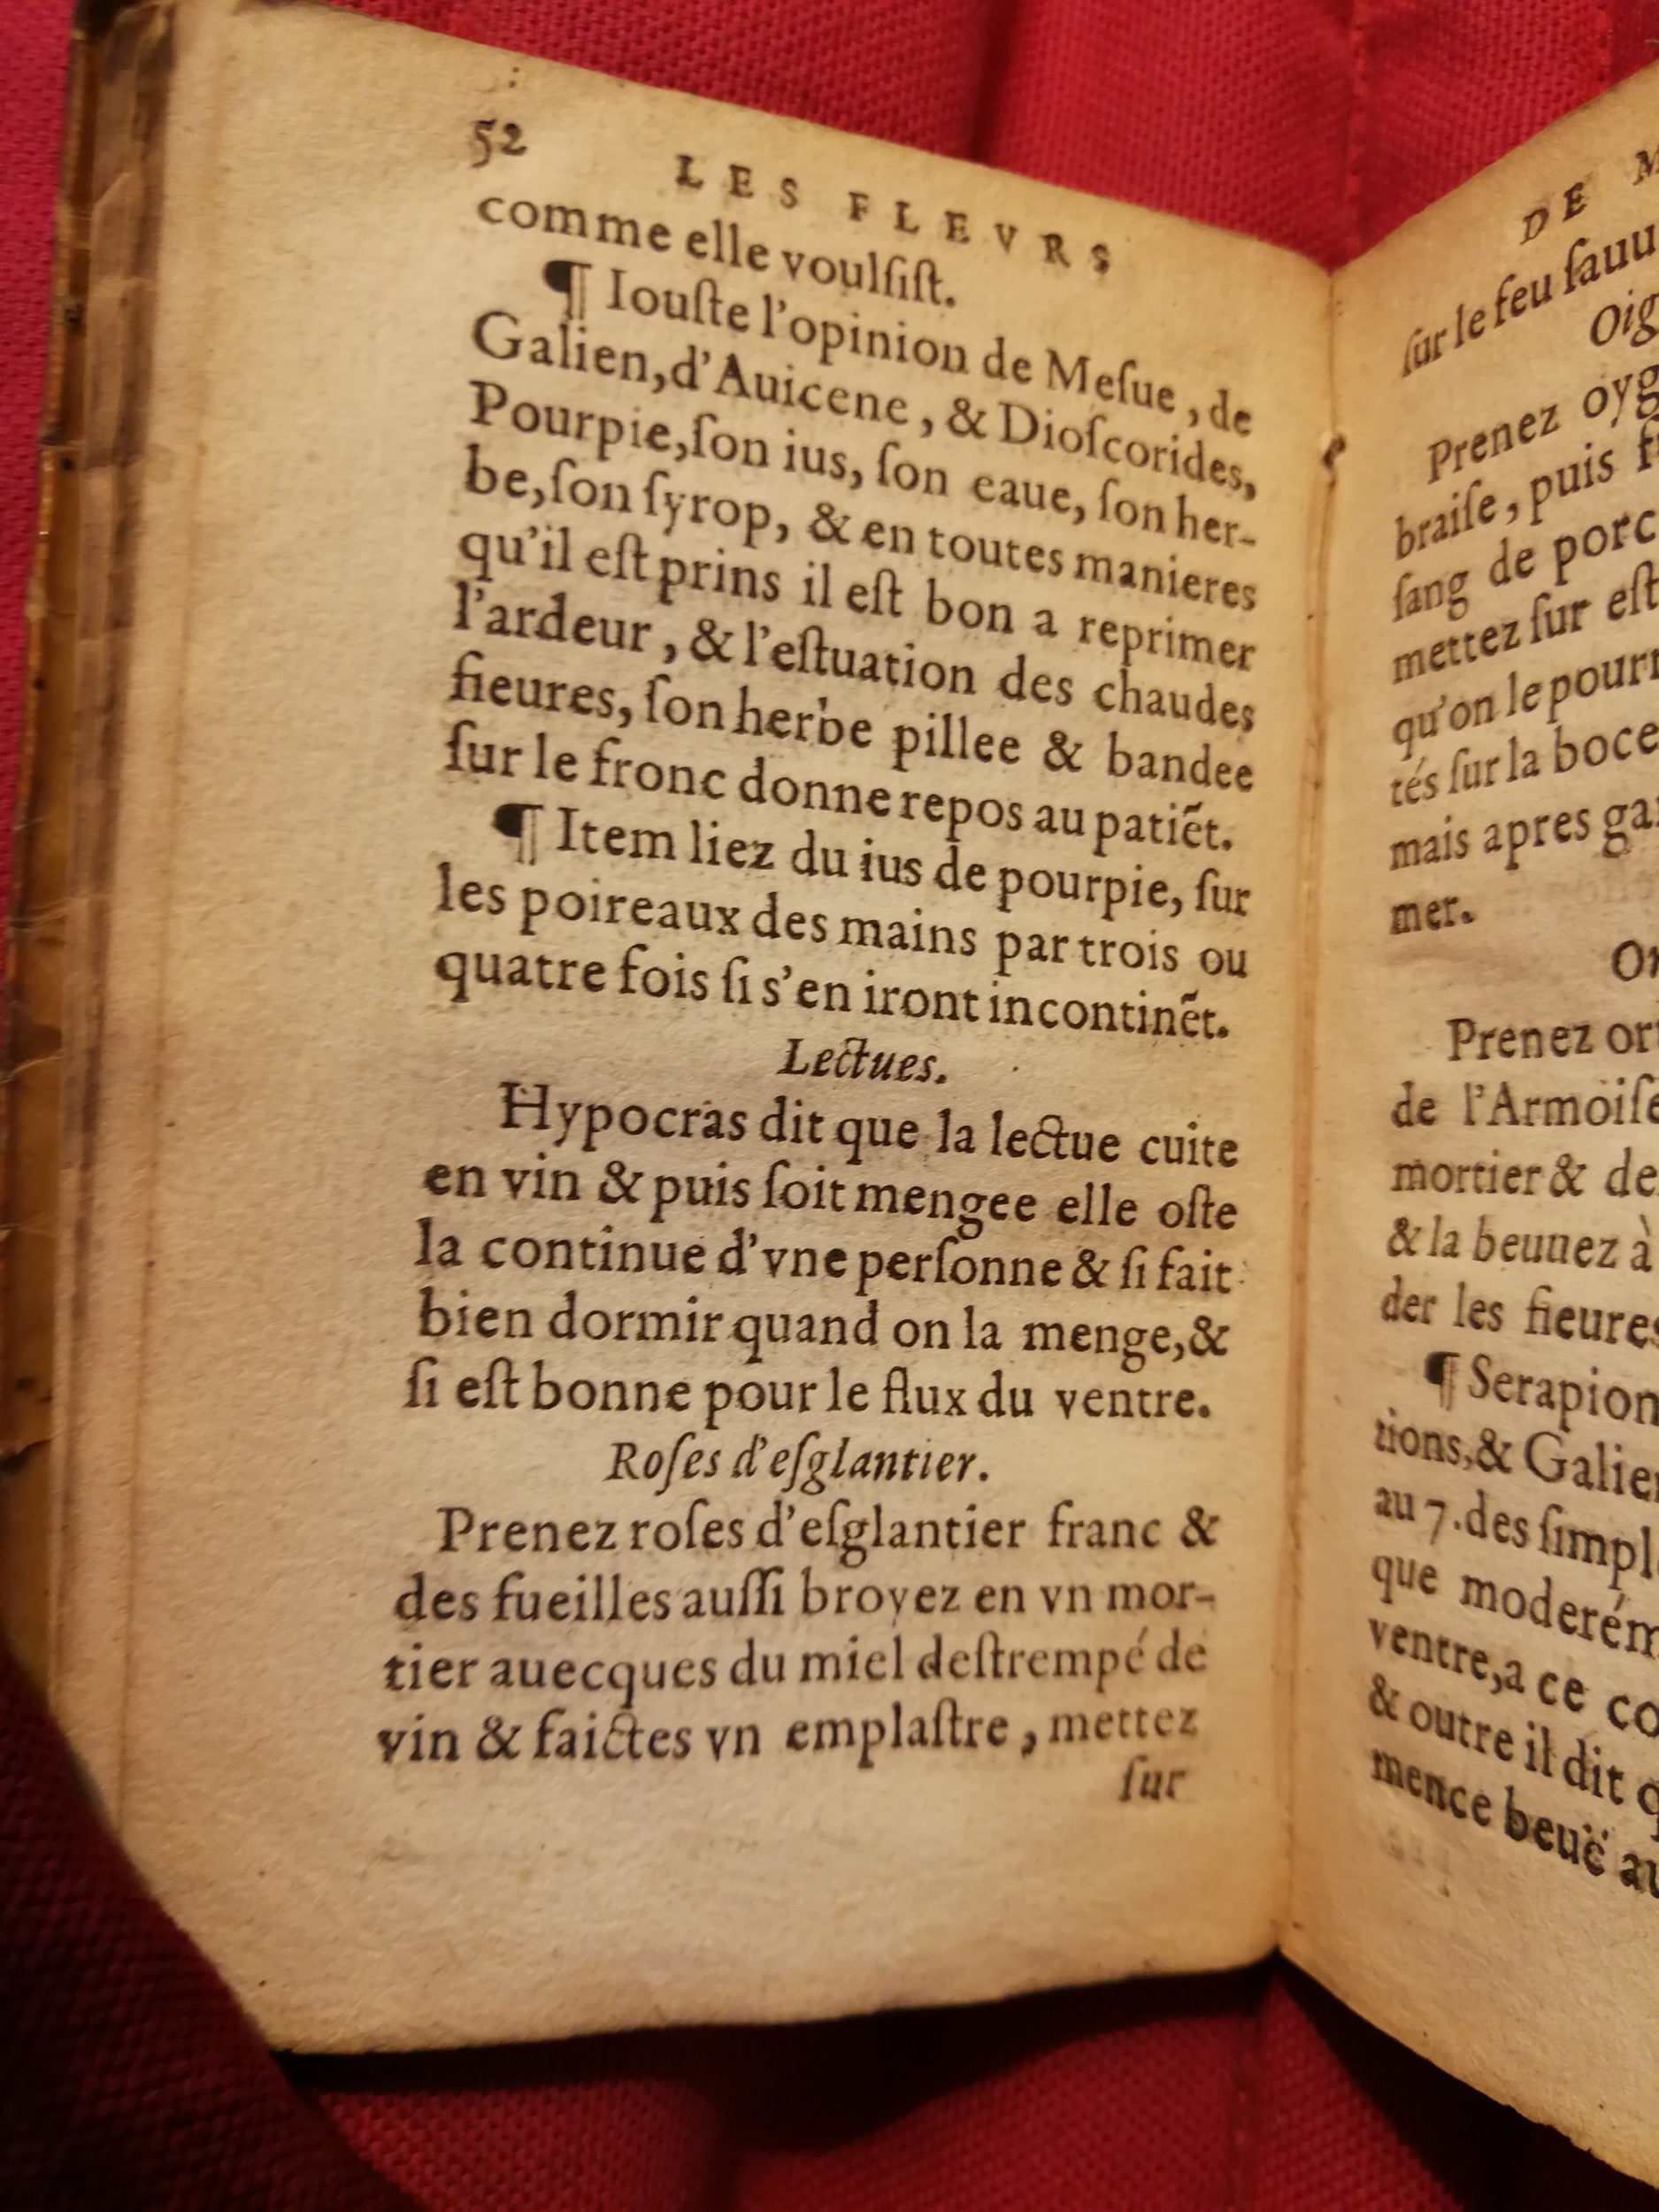 52
LES FLEVRS
comme elle voulſiſt.
¶ Iouſte l'opinion de Meſue, de
Galien, d'Auicene, & Dioſcorides,
Pourpie, ſon ius, ſon eaue, ſon her-
be, ſon ſyrop, & en toutes manieres
qu'il eſt prins il eſt bon a reprimer
l'ardeur, & l'eſtuation des chaudes
fieures, ſon herbe pillee & bandee
ſur le fronc donne repos au patiēt.
¶ Item liez du ius de pourpie, ſur
les poireaux des mains par trois ou
quatre fois ſi s'en iront incontinēt.
Lectues.
Hypocras dit que la lectue cuite
en vin & puis ſoit mengee elle oſte
la continue d'vne perſonne & ſi fait
bien dormir quand on la menge, &
ſi eſt bonne pour le flux du ventre.
Roſes d'eſglantier.
Prenez roſes d'eſglantier franc &
des fueilles auſſi broyez en vn mor-
tier auecques du miel deſtrempé de
vin & faictes vn emplaſtre, mettez
ſur
DE
ſur le feu
Prenez
braiſe, puis
ſang de porc
mettez ſur
qu'on le
tés ſur la boce
mais apres
mer.
Prenez
de l'Armoiſe
mortier & de
& la beuuez à
der les fieures
¶ Serapion
tions, &
au 7. des
que
ventre, a ce
& outre il dit
mence beuë